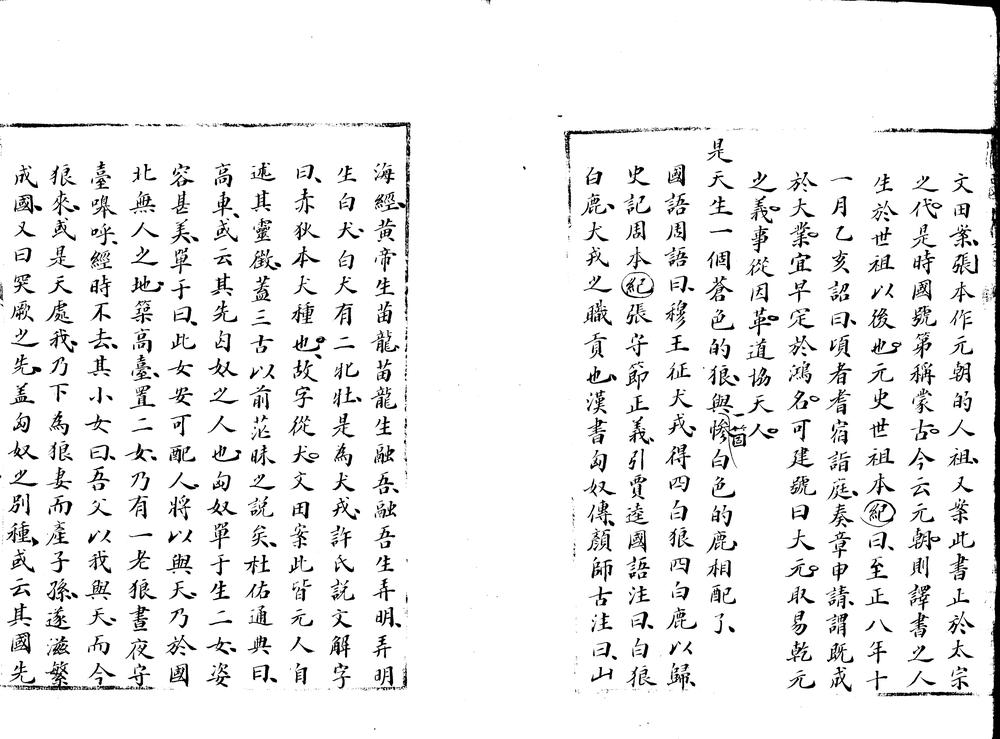 文田案張本作元朝的人祖又案此書止於太宗
之代是時國號第稱蒙古今云元朝則譯書之人
生於世祖以後也元史世祖本紀曰至正八年十
一月乙亥詔曰頃者耆宿詣庭奏章申請謂既成
於大業宜早定於鴻名可建號曰大元取易乾元
之義事從因革道協天人
是天生一個蒼色的狼與一箇慘白色的鹿相配了
國語周語曰穆王征犬戎得四白狼四白鹿以歸
史記周本紀張守節正義引賈逵國語注曰白狼
白鹿犬戎之職貢也漢書匈奴傳顏師古注曰山
海經黃帝生苗龍苗龍生融吾融吾生弄明弄明
生白犬白犬有二牝牡是為犬戎許氏説文解字
曰赤狄本犬種也故字從犬文田案此皆元人自
述其靈徵蓋三古以前茫昧之説矣杜佑通典曰
高車或云其先匈奴之人也匈奴單于生二女姿
容甚美單于曰此女安可配人將以與天乃於國
北無人之地築高臺置二女乃有一老狼晝夜守
臺嘷呼經時不去其小女曰吾父以我與天而今
狼來或是天處我乃下為狼妻而產子孫遂滋繁
成國又曰突厥之先蓋匈奴之別種或云其國先